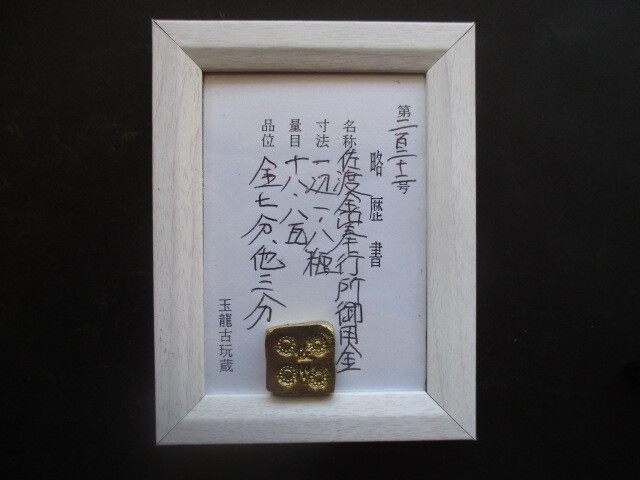 第二百二十二号
略歴書
名称 佐渡金山奉行所御用金
寸法 一辺一、八糎
量目 十八、八瓦
品位 金七分、他三分
玉龍古玩蔵